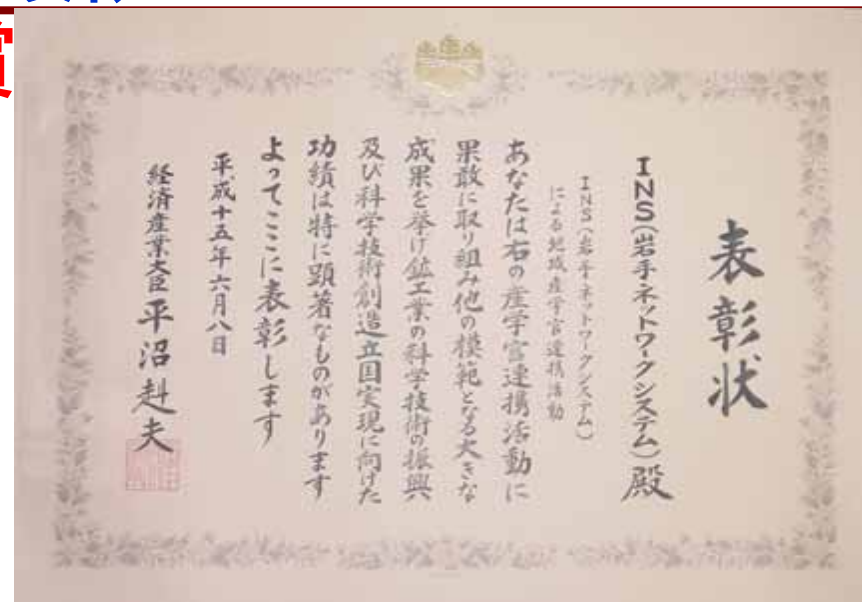 賞
表彰状
INS(岩手ネットワークシステム)殿
INS(岩手ネットワークシステム)
による地域産学官連携活動
あなたは右の産学官連携活動に
果敢に取り組み他の模範となる大きな
成果を挙げ鉱工業の科学技術の振興
及び科学技術創造立国実現に向けた
功績は特に顕著なものがあります
よってここに表彰します
平成十五年六月八日
経済産業大臣 平沼赳夫